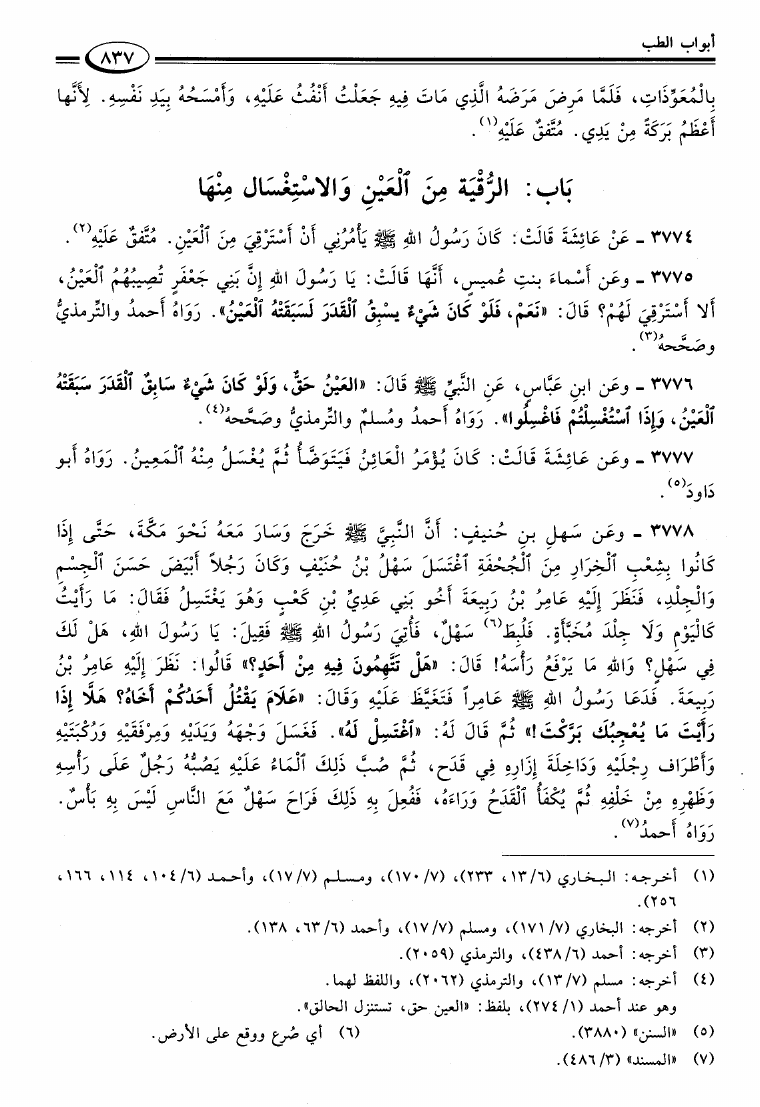 أبواب الطب
٨٣٧
بِالْمُعَوِّذَاتِ، فَلَمَّا مَرِضَ مَرَضَهُ الَّذِي مَاتَ فِيهِ جَعَلْتُ أَنْفُثُ عَلَيْهِ، وَأَمْسَحُهُ بِيَدِ نَفْسِهِ. لِأَنَّها
أَعْظَمُ بَرَكَةً مِنْ يَدِي. مُتَّفقٌ عَلَيْهِ(١).
بَاب: الرُّقْيَة مِنَ ٱلْعَيْنِ وَالاسْتِغْسَال مِنْهَا
٣٧٧٤ - عَنْ عَائِشَةَ قَالَتْ: كَانَ رَسُولُ اللهِ ﷺ يَأْمُرُنِي أَنْ أَسْتَرْقِيَ مِنَ ٱلْعَيْنِ. مُتَّفقٌ عَلَيْهِ(٢).
٣٧٧٥ - وعَن أَسْماءَ بنتِ عُميسٍ، أَنَّهَا قَالَتْ: يَا رَسُولَ اللهِ إِنَّ بَنِي جَعْفَرٍ تُصِيبُهُمُ ٱلْعَيْنُ،
أَلا أَسْتَرْقِيَ لَهُمْ؟ قَالَ: «نَعَمْ، فَلَوْ كَانَ شَيْءٌ يسْبِقُ ٱلْقَدَرَ لَسَبَقَتْهُ ٱلْعَيْنُ». رَوَاهُ أَحمدُ والتِّرمذيُّ
وصَحَّحهُ(٣).
٣٧٧٦ - وعَن ابنِ عَبَّاسٍ، عَنِ النَّبيِّ ﷺ قَالَ: «العَيْنُ حَقٌّ، وَلَوْ كَانَ شَيْءٌ سَابِقُ ٱلْقَدَرَ سَبَقَتْهُ
ٱلْعَيْنُ، وَإِذَا ٱسْتُغْسِلْتُمْ فَاغْسِلُوا». رَوَاهُ أَحمدُ ومُسلمٌ والتِّرمذيُّ وصَحَّحهُ(٤).
٣٧٧٧ - وعَن عَائِشَةَ قَالَتْ: كَانَ يُؤْمَرُ الْعَائِنُ فَيَتَوَضَّأُ ثُمَّ يُغْسَلُ مِنْهُ ٱلْمَعِينُ. رَوَاهُ أبو
دَاودَ(٥).
٣٧٧٨ - وعَن سَهلِ بنِ حُنيفٍ: أَنَّ النَّبِيَّ ﷺ خَرَجَ وَسَارَ مَعَهُ نَحْوَ مَكَّةَ، حَتَّى إِذَا
كَانُوا بِشِعْبِ ٱلْخِرَارِ مِنَ ٱلْجُحْفَةِ اغْتَسَلَ سَهْلُ بْنُ حُنَيْفٍ وَكَانَ رَجُلاً أَبْيَضَ حَسَنَ ٱلْجِسْمِ
وَالْجِلْدِ، فَنَظَرَ إِلَيْهِ عَامِرُ بْنُ رَبِيعَةَ أَخُو بَنِي عَدِيِّ بْنِ كَعْبٍ وَهُوَ يَغْتَسِلُ فَقَالَ: مَا رَأَيْتُ
كَالْيَوْمِ وَلَا جِلْدَ مُخَبَّأَةٍ. فَلُبِطَ(٦) سَهْلٌ، فَأُتِيَ رَسُولُ اللهِ ﷺ فَقِيلَ: يَا رَسُولَ اللهِ، هَلْ لَكَ
فِي سَهْلٍ؟ وَاللهِ مَا يَرْفَعُ رَأْسَهُ! قَالَ: «هَلْ تَتَّهِمُونَ فِيهِ مِنْ أَحَدٍ؟» قَالُوا: نَظَرَ إِلَيْهِ عَامِرُ بْنُ
رَبِيعَةَ. فَدَعَا رَسُولُ اللهِ ﷺ عَامِراً فَتَغَيَّظَ عَلَيْهِ وَقَالَ: «عَلَامَ يَقْتُلُ أَحَدُكُمْ أَخَاهُ؟ هَلَّا إِذَا
رَأَيْتَ مَا يُعْجِبُكَ بَرَّكْتَ!» ثُمَّ قَالَ لَهُ: «ٱغْتَسِلْ لَهُ». فَغَسَلَ وَجْهَهُ وَيَدَيْهِ وَمِرْفَقَيْهِ وَرُكْبَتَيْهِ
وَأَطْرَافَ رِجْلَيْهِ وَدَاخِلَةَ إِزَارِهِ فِي قَدَحٍ، ثُمَّ صُبَّ ذَلِكَ ٱلْمَاءُ عَلَيْهِ يَصُبُّهُ رَجُلٌ عَلَى رَأْسِهِ
وَظَهْرِهِ مِنْ خَلْفِهِ ثُمَّ يُكْفَأُ ٱلْقَدَحُ وَرَاءَهُ، فَفُعِلَ بِهِ ذَلِكَ فَرَاحَ سَهْلٌ مَعَ النَّاسِ لَيْسَ بِهِ بَأْسٌ.
رَوَاهُ أَحمدُ(٧).
(١) أخرجه: البخاري (١٣/٦، ٢٣٣)، (١٧٠/٧)، ومسلم (١٧/٧)، وأحمد (١٠٤/٦، ١١٤، ١٦٦،
٢٥٦).
(٢) أخرجه: البخاري (١٧١/٧)، ومسلم (١٧/٧)، وأحمد (٦٣/٦، ١٣٨).
(٣) أخرجه: أحمد (٤٣٨/٦)، والترمذي (٢٠٥٩).
(٤) أخرجه: مسلم (١٣/٧)، والترمذي (٢٠٦٢)، واللفظ لهما.
وهو عند أحمد (٢٧٤/١)، بلفظ: «العين حق، تستنزل الحالق».
(٥) «السنن» (٣٨٨٠). (٦) أي صُرع ووقع على الأرض.
(٧) «المسند» (٤٨٦/٣).